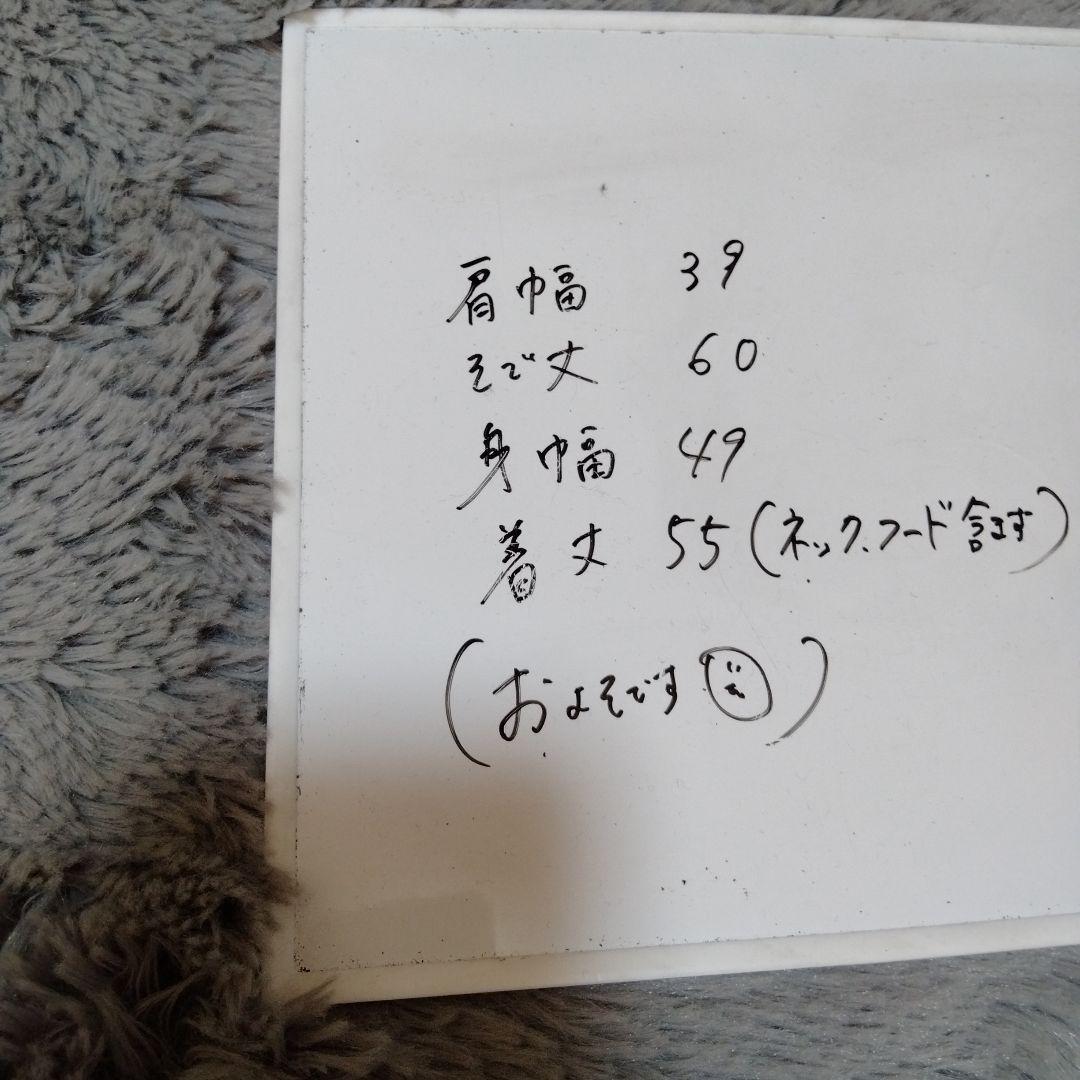 肩巾幅 39
そで丈 60
身巾幅 49
着丈 55(ネック、フード含ます)
(およそです)